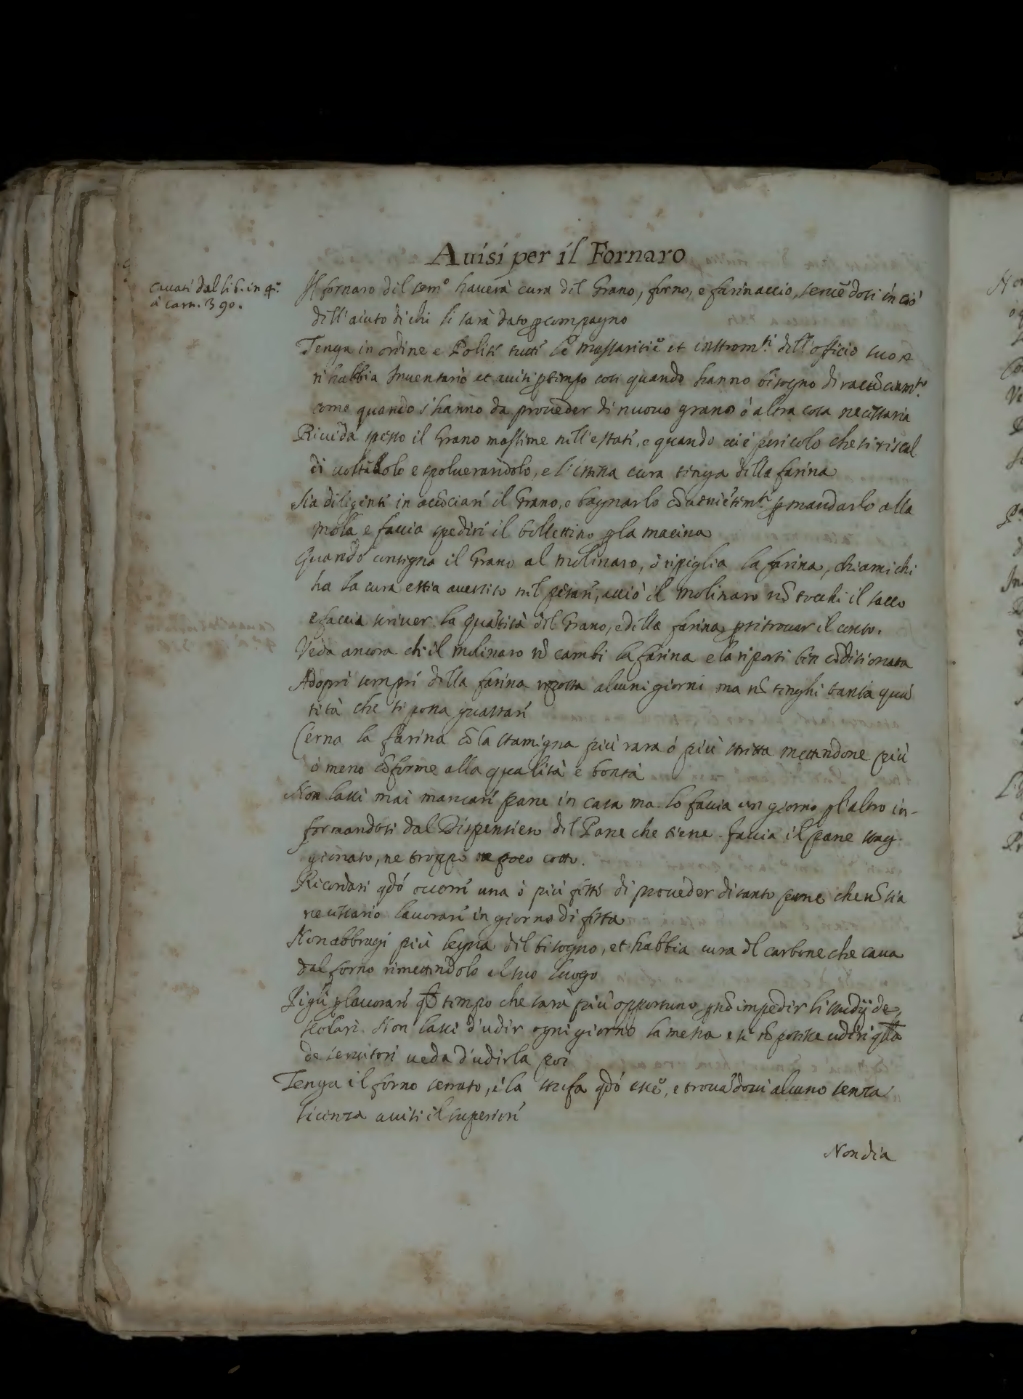 Avisi per il Fornaro
Cavati dal lib. in 4.°
à carn. 390.
Il fornaro del Sem.° haverà cura del Grano, forno, e farinaccio, servēdosi in ciò
dell'aiuto di chi li sarà dato p compagno
Tenga in ordine e Politi tutti li massaritie et instrom.ti dell'officio suo e
n'habbia Inventario et avisi p tempo così quando hanno bisogno di
come quando s'hanno da proveder di nuovo grano ò altra cosa necessaria
Riveda spesso il Grano massime nell'estate, e quando vi è pericolo che si riscal
di voltādolo e spolverandolo, e l'istessa cura tenga della farina
Sia diligente in acōciare il Grano, e bagnarlo p mandarlo alla
mola e faccia spedire il bollettino p la macina
Quando consegna il Grano al molinaro, ò ripiglia la farina, chiami chi
ha la cura e stia avertito nel pesare, acciò il molinaro nō tocchi il sacco
e faccia scriver la quātità del Grano, e della farina p ritrovar il conto.
Veda ancora ch il molinaro nō cambi la farina e la riporti ben cōditionata
Adopri sempre della farina riposta alcuni giorni ma nō tenghi tanta quā
tità che si possa guastare
Cerna la farina cō la stamigna più rara ò più stretta mettendone più
ò meno cōforme alla qualità e bontà
Non lassi mai mancare pane in casa ma lo faccia un giorno p l'altro in-
formandosi dal Dispensiero del Pane che tiene. faccia il pane stag-
gionato, ne troppo ne poco cotto.
Ricordasi qdo occorre una ò più feste di proveder di tanto pane che nō sia
necessario lavorare in giorno di festa
Non abbrugi più legna del bisogno, et habbia cura del carbone che cava
dal forno rimettendolo al suo luogo
Pigli p lavorare tempo che sarà più opportuno p nō impedir li studij de
scolari. Non lassi d'udir ogni giorno la messa e se nō potesse udir
de servitori veda d'udirla poi
Tenga il forno serrato, e la stufa qdo esce, e trovādovi alcuno senza
licenza avisi il superiore
Non dia